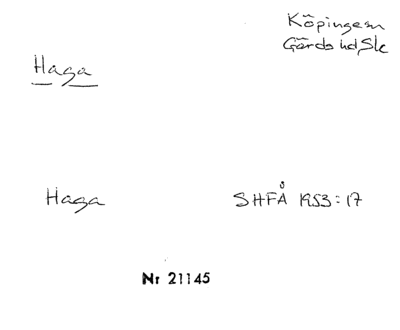 Köpingesn
Gärds hd Sk
Haga
Haga SHFÅ 1953:17
Nr 21145